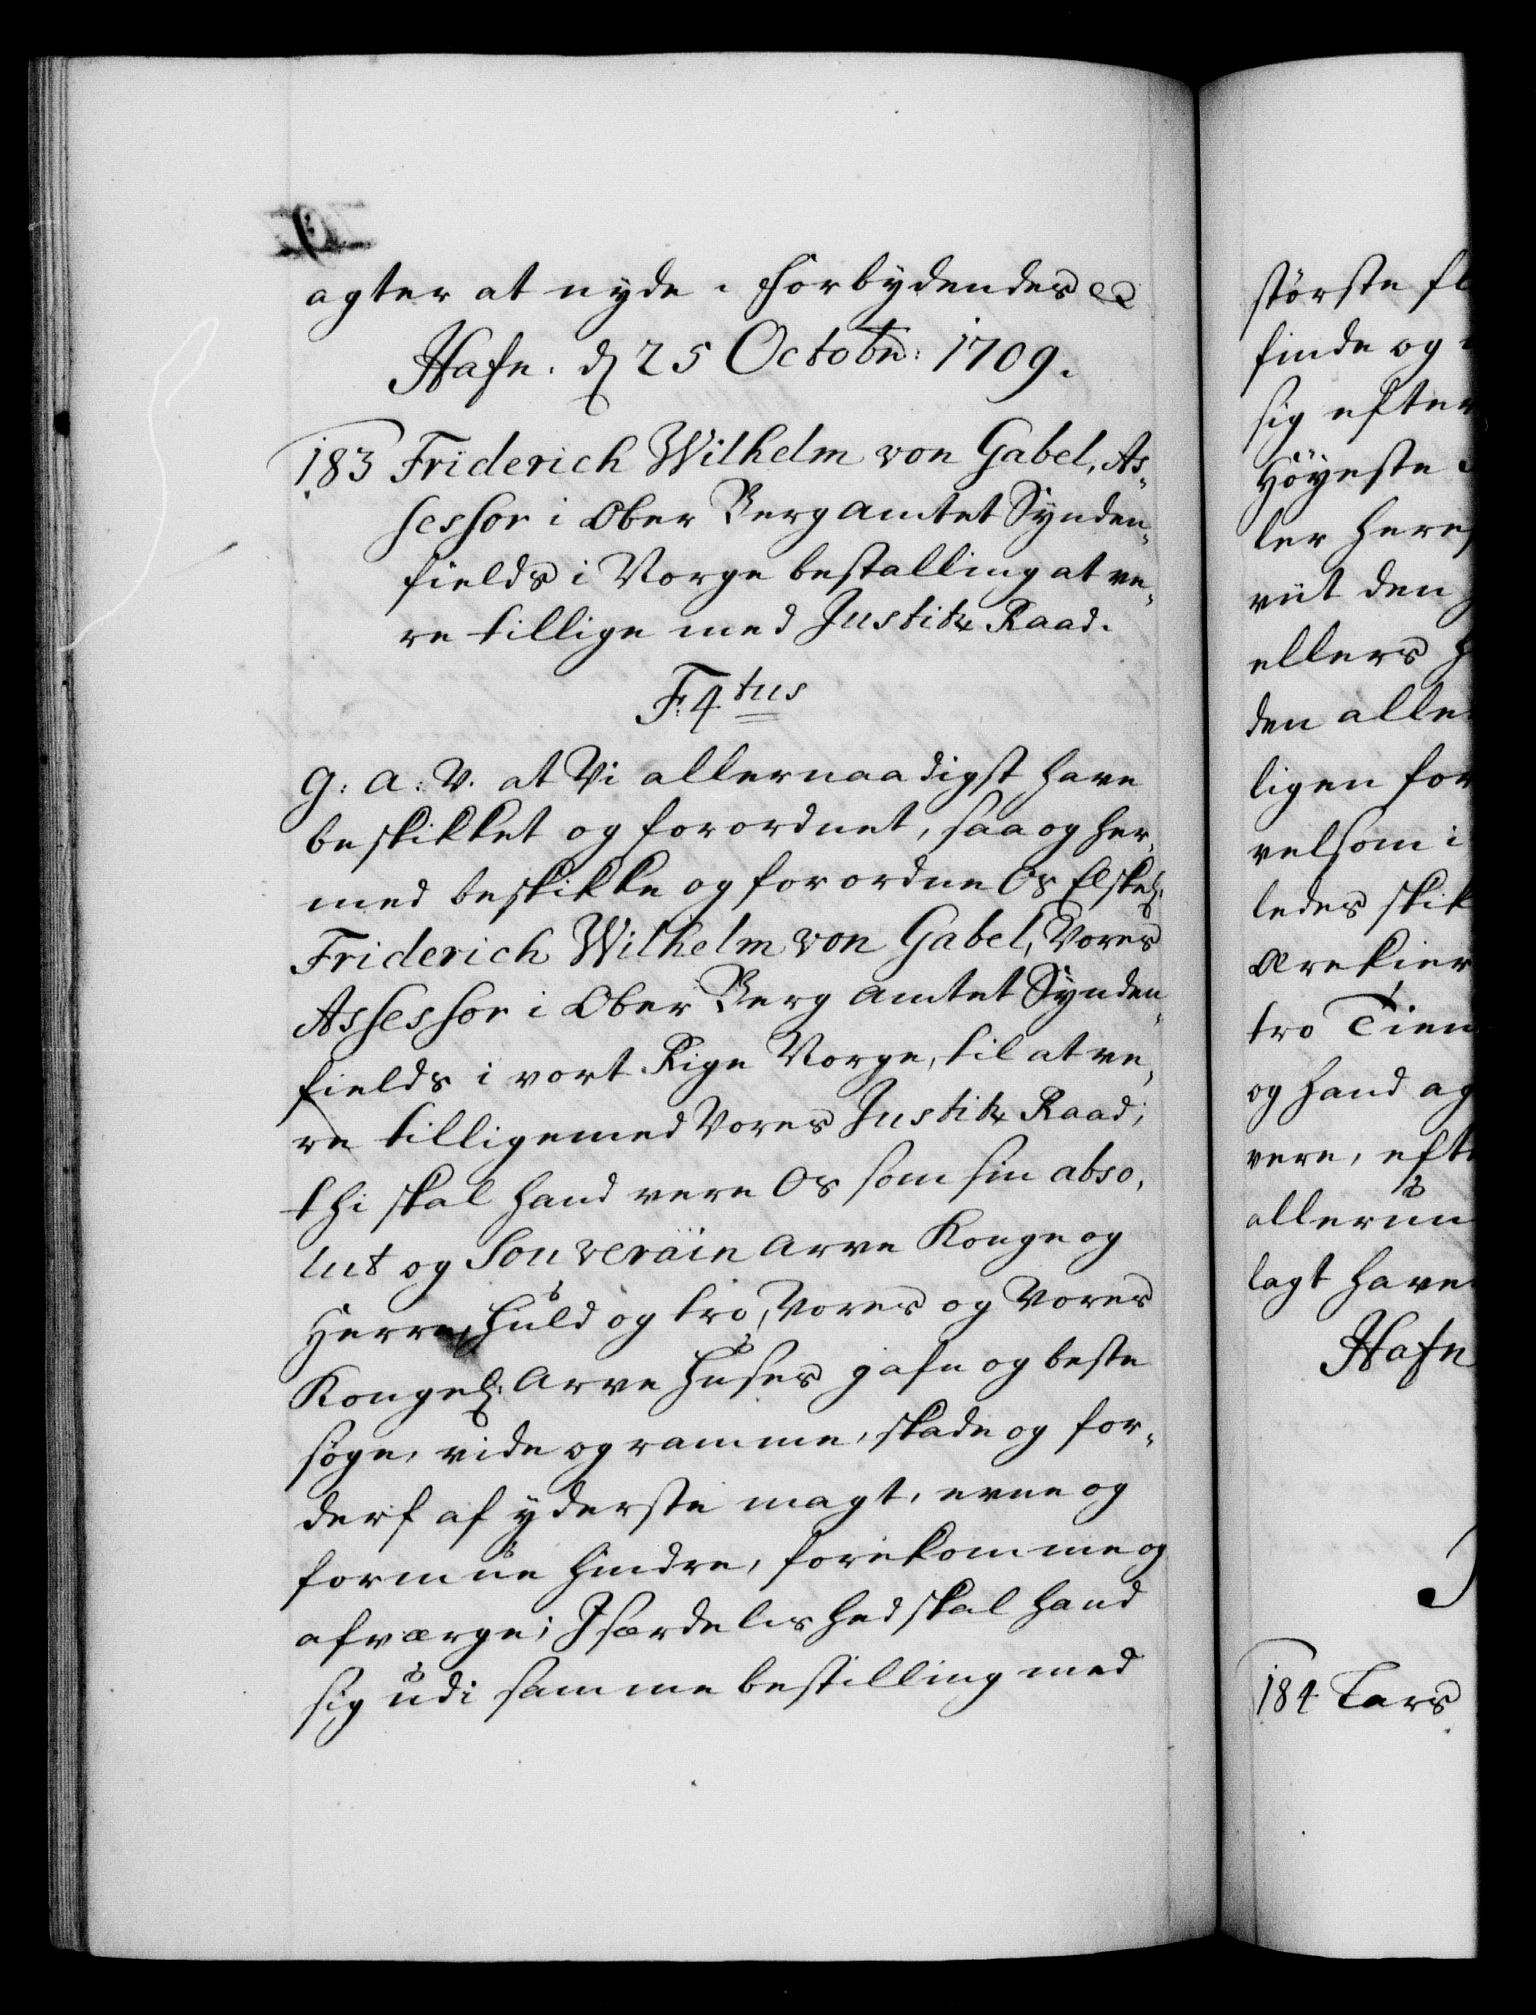 agter at nyde. Forbydendes etc
Hafn. d 25 Octobr: 1709.
183 Friderich Wilhelm von Gabel, As-
sessor i Ober Berg Amtet Synden-
fields i Norge bestalling at ve-
re tillige med Justitz Raad.
F: 4tus
G: A: V. at Vi allernaadigst have
beskikket og forordnet, saa og her-
med beskikke og forordne Os Elskel:
Friderich Wilhelm von Gabel, Vores
Assessor i Ober Berg Amtet Synden-
fields i vort Rige Norge, til at ve-
re tilligemed Vores Justitz Raad;
thi skal hand vere Os som sin abso-
lut og Souverain Arve Konge og
Herre, huld og tro, Vores og Vores
Kongel: Arve Huses gafn og beste
søge, vide og ramme, skade og for-
derf af yderste magt, evne og
formue hindre, forekomme og
afværge; Isærdeleshed skal hand
sig udi samme bestilling med
største fl
finde og
sig efter
Höyeste
ler heref
riit den
ellers
den alle
ligen for
velsom i
ledes skik
ærekier
tro Tien
og hand ag
vere, efte
allerun
lagt have
Hafn
184 Lars